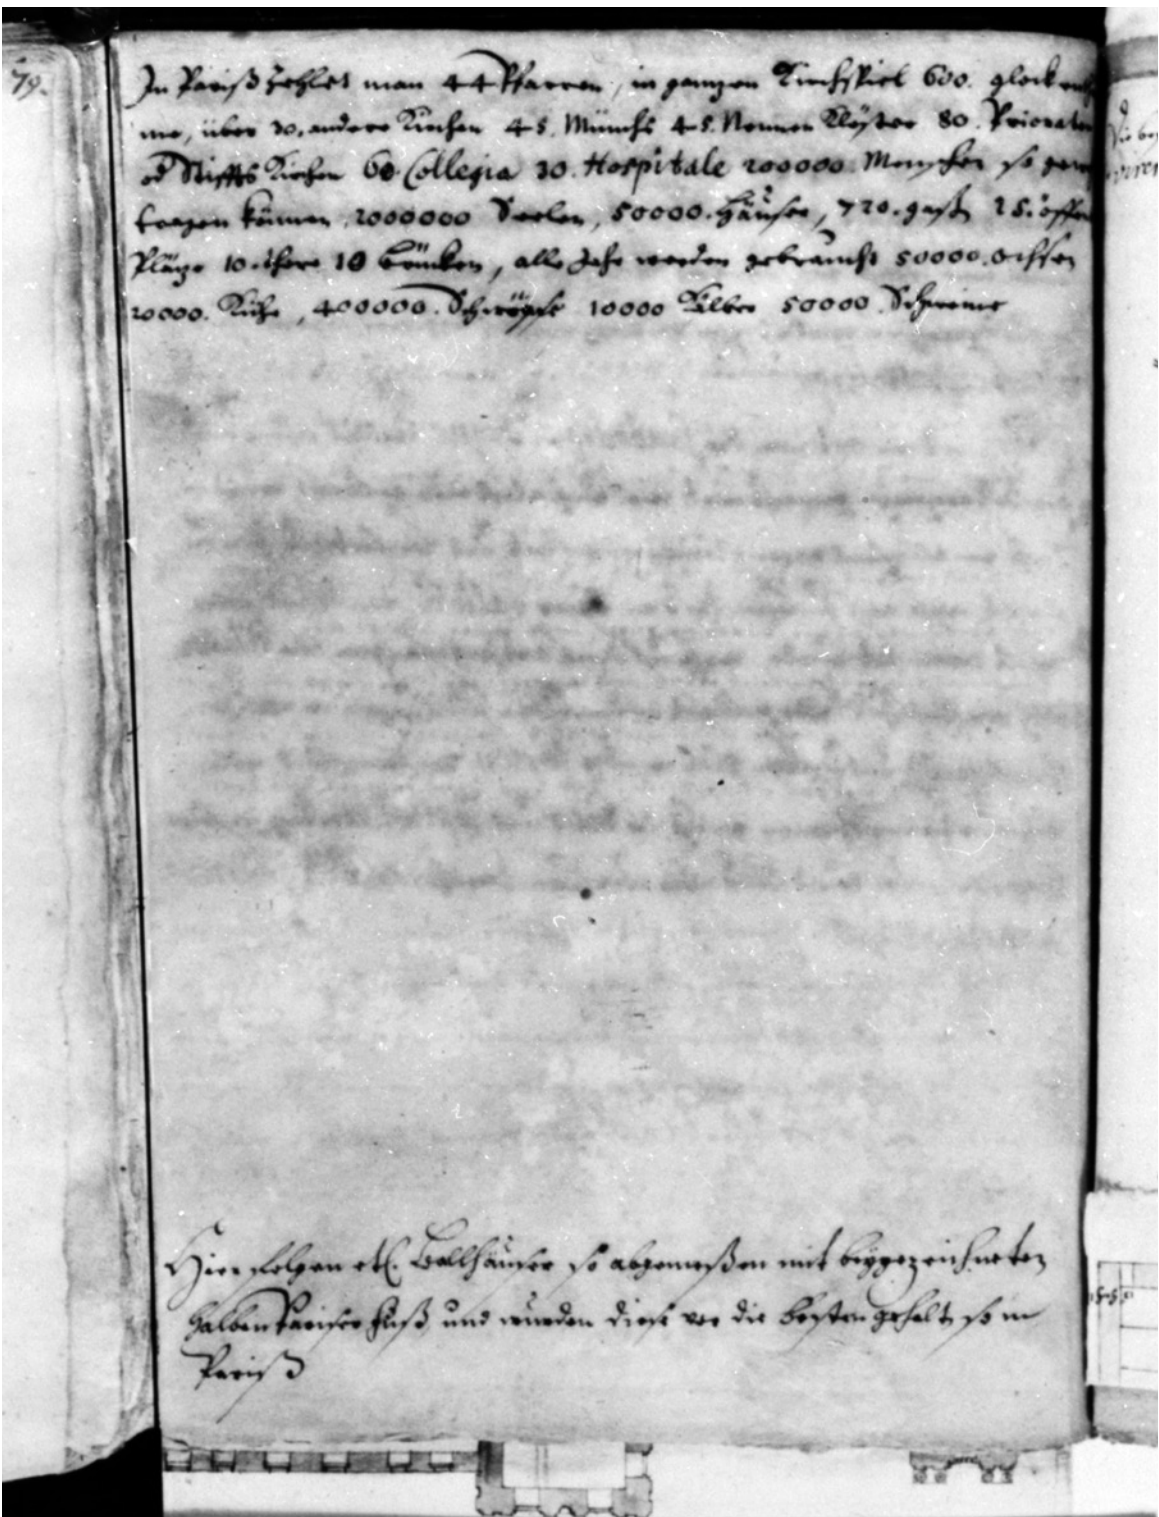 79.
In Pariß zehlet man 44 Pfarren, in gantzen Kirchspiel 600. glock
me, über 30. andere Kirchen 45. Münchs 45. Nonnen Klöster 80. Priorate
od Stiffts Kirchen 60. Collegia 30. Hospitale 200000. Menschen so
tragen können, 2000000 Seelen, 50000. Häuser, 720. gaß, 25. öffen
Plätze 10. thore 10 brücken, alle Jahr werden gebraucht 50000. ochsen
20000. Kühe, 400000. 10000 Kelber 50000. Schweine
Hier folgen etl. Ballhäuser so abgemeßen mit beygezeichneten
halben Pariser fuß, und wurden diese vor die besten gehalt, so in
Pariß